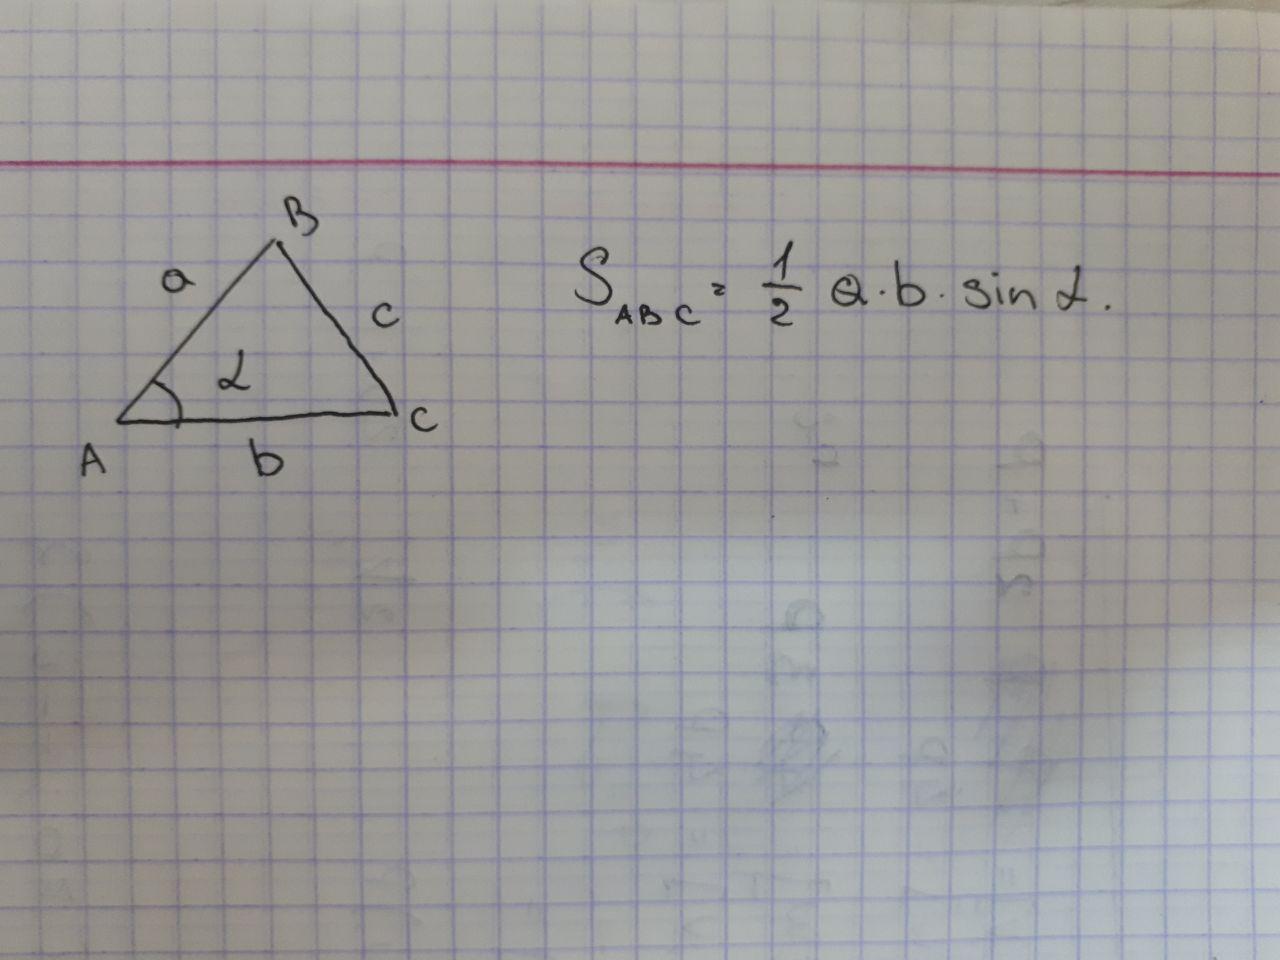 B
a
c
α
A
b
C
S_ABC = 1/2 a·b·sin α.